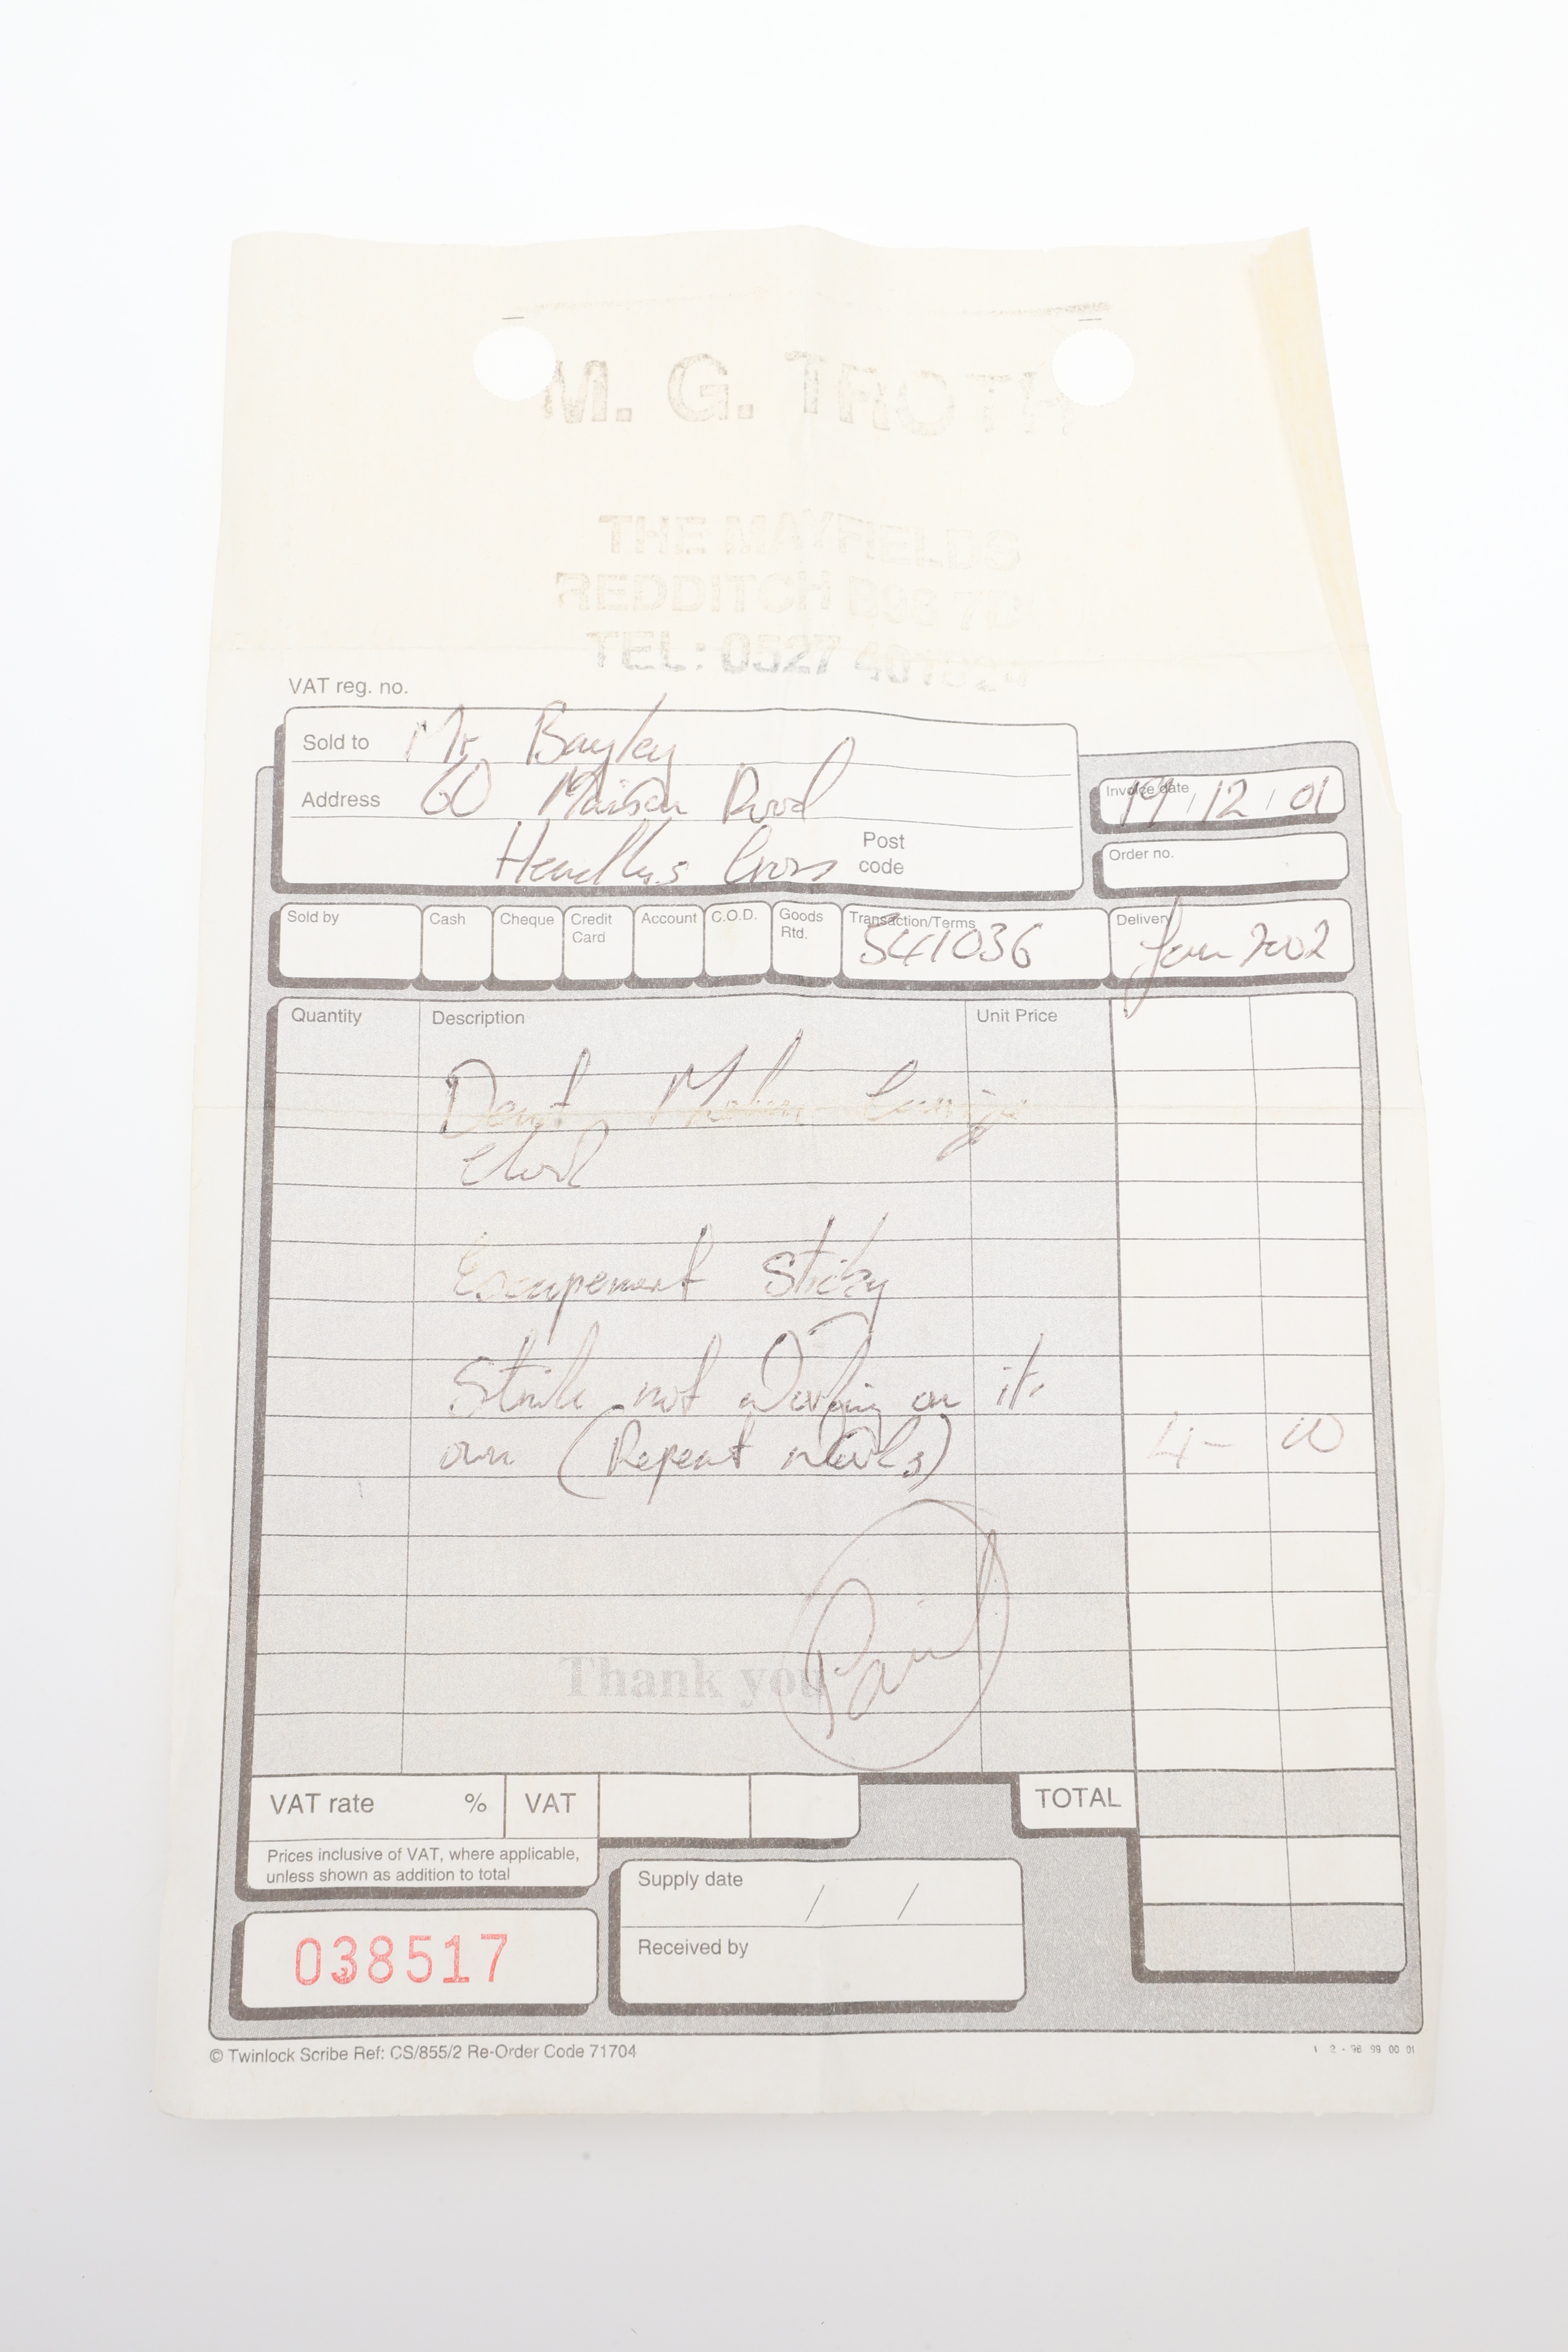 M. G. TROTH
THE MAYFIELDS
REDDITCH B98 7D
TEL: 0527
VAT reg. no.
Sold to Mr Bayley
Address 60 Road
Headless Cross
Post code
Invoice date 19 / 12 / 01
Order no.
Sold by Cash Cheque Credit Card Account C.O.D. Goods Rtd. Transaction/Terms 541036 Delivery Jan 2002
Quantity Description Unit Price
Dent
Clock
Escapement Sticky
Strike not Working on its
own (Repeat works)
4- 00
Paid
Thank you
VAT rate % VAT TOTAL
Prices inclusive of VAT, where applicable,
unless shown as addition to total
Supply date / /
Received by
038517
© Twinlock Scribe Ref: CS/855/2 Re-Order Code 71704
1 2 - 98 99 00 01